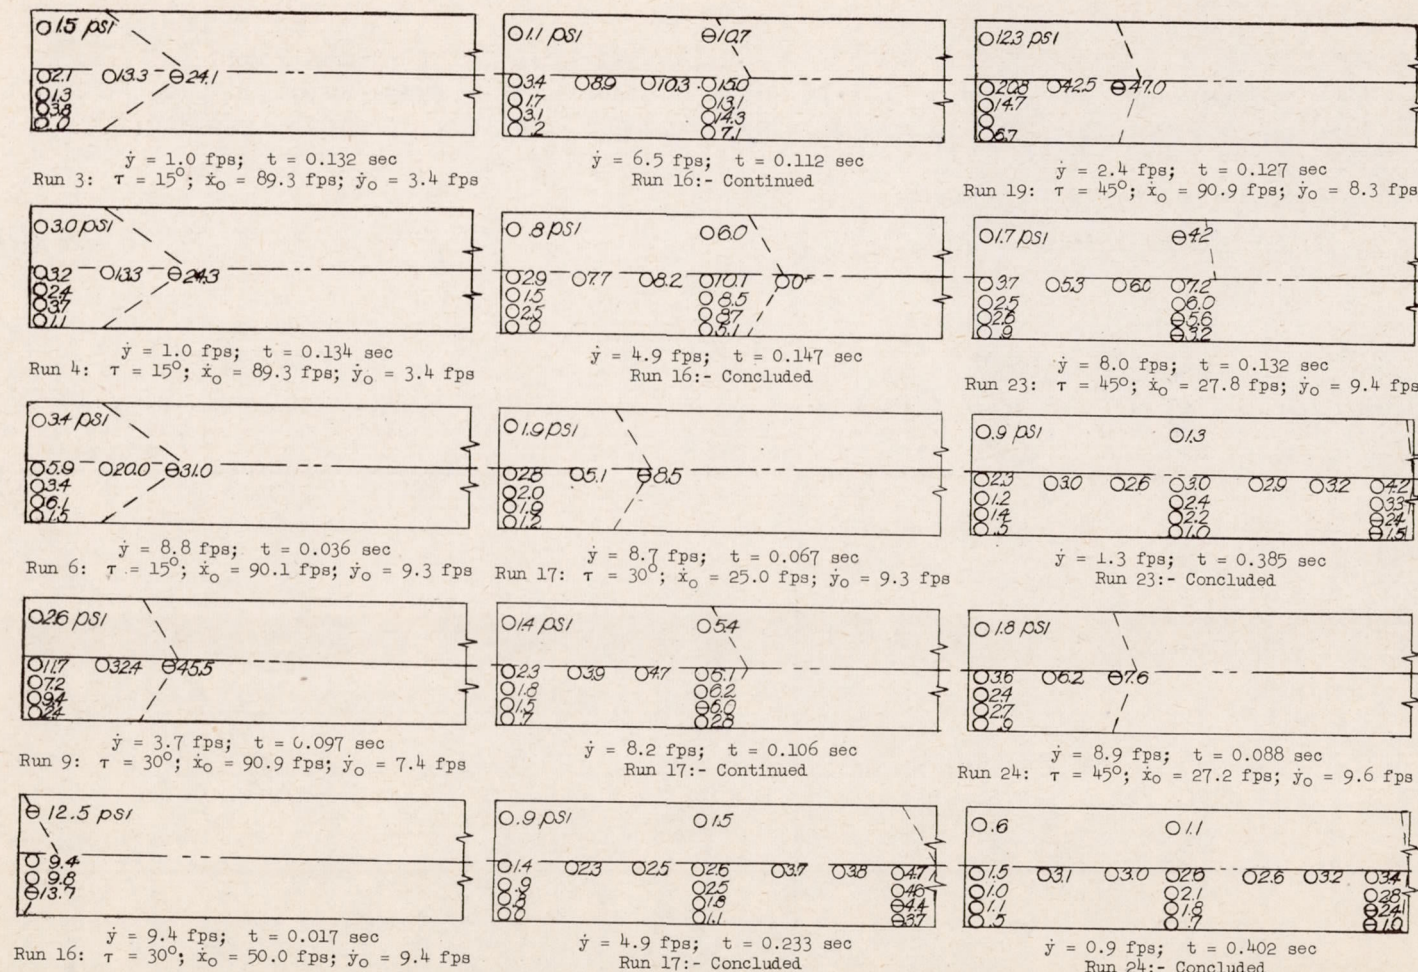 1.5 psi
2.1 13.3 24.1
1.3
3.8
2.0
ẏ = 1.0 fps; t = 0.132 sec
Run 3: τ = 15°; ẋo = 89.3 fps; ẏo = 3.4 fps
3.0 psi
3.2 13.3 24.3
2.4
3.7
1.1
ẏ = 1.0 fps; t = 0.134 sec
Run 4: τ = 15°; ẋo = 89.3 fps; ẏo = 3.4 fps
3.4 psi
5.9 20.0 31.0
3.4
6.1
1.5
ẏ = 8.8 fps; t = 0.036 sec
Run 6: τ = 15°; ẋo = 90.1 fps; ẏo = 9.3 fps
2.6 psi
11.7 32.4 45.5
7.2
9.4
2.4
ẏ = 3.7 fps; t = 0.097 sec
Run 9: τ = 30°; ẋo = 90.9 fps; ẏo = 7.4 fps
12.5 psi
9.4
9.8
13.7
ẏ = 9.4 fps; t = 0.017 sec
Run 16: τ = 30°; ẋo = 50.0 fps; ẏo = 9.4 fps
1.1 psi 10.7
3.4 8.9 10.3 15.0
1.7 13.1
3.1 14.3
.2 7.1
ẏ = 6.5 fps; t = 0.112 sec
Run 16:- Continued
.8 psi 6.0
2.9 7.7 8.2 10.1 0
1.5 8.5
2.5 8.7
0 5.1
ẏ = 4.9 fps; t = 0.147 sec
Run 16:- Concluded
1.9 psi
2.8 5.1 8.5
2.0
1.9
1.2
ẏ = 8.7 fps; t = 0.067 sec
Run 17: τ = 30°; ẋo = 25.0 fps; ẏo = 9.3 fps
1.4 psi 5.4
2.3 3.9 4.7 5.1
1.8 6.2
1.5 6.0
.7 2.8
ẏ = 8.2 fps; t = 0.106 sec
Run 17:- Continued
.9 psi 1.5
1.4 2.3 2.5 2.6 3.7 3.8 4.7
.9 2.5 4.6
.8 1.8 4.4
0 1.1 3.7
ẏ = 4.9 fps; t = 0.233 sec
Run 17:- Concluded
12.3 psi
20.8 42.5 47.0
14.7
6.7
ẏ = 2.4 fps; t = 0.127 sec
Run 19: τ = 45°; ẋo = 90.9 fps; ẏo = 8.3 fps
1.7 psi 4.2
3.7 5.3 6.0 7.2
2.5 6.0
2.6 5.6
.9 3.2
ẏ = 8.0 fps; t = 0.132 sec
Run 23: τ = 45°; ẋo = 27.8 fps; ẏo = 9.4 fps
.9 psi 1.3
2.3 3.0 2.6 3.0 2.9 3.2 4.2
1.2 2.4 3.3
1.4 2.2 2.4
.5 1.0 1.5
ẏ = 1.3 fps; t = 0.385 sec
Run 23:- Concluded
1.8 psi
3.6 6.2 7.6
2.4
2.7
.9
ẏ = 8.9 fps; t = 0.088 sec
Run 24: τ = 45°; ẋo = 27.2 fps; ẏo = 9.6 fps
.6 1.1
1.5 3.1 3.0 2.6 2.6 3.2 3.4
1.0 2.1 2.8
1.1 1.8 2.4
.5 .7 1.0
ẏ = 0.9 fps; t = 0.402 sec
Run 24:- Concluded